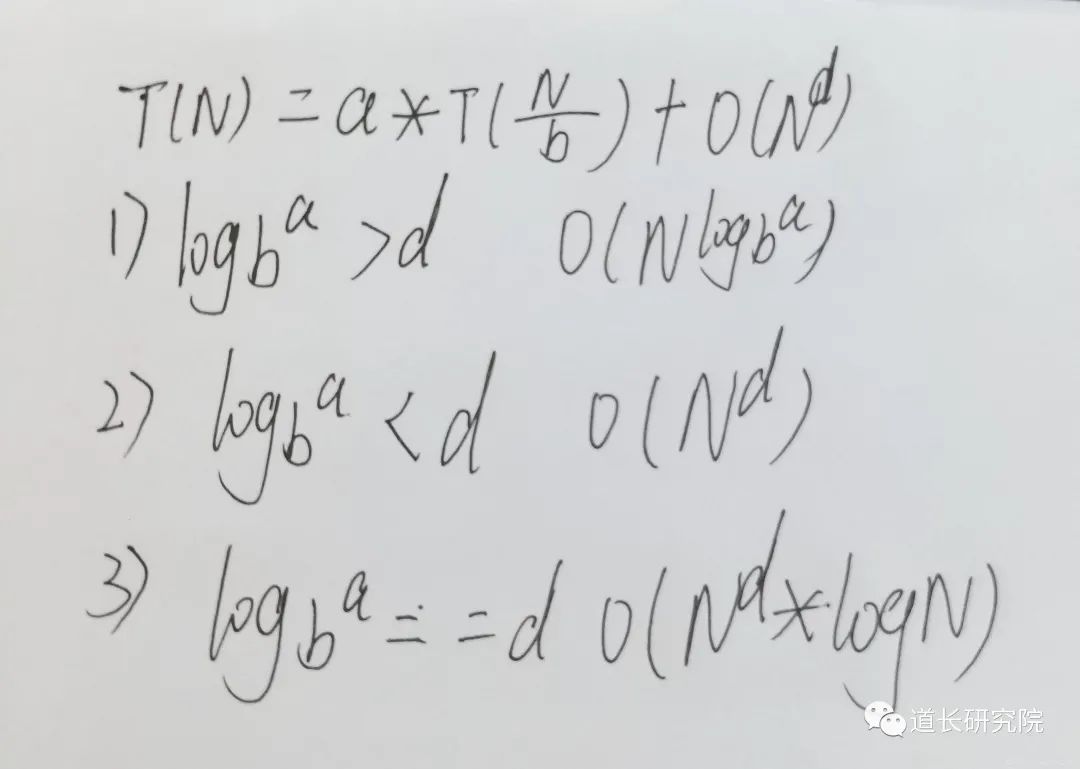 T(N) = a * T(N/b) + O(N^d)
1) log_b^a > d O(N^log_b^a)
2) log_b^a < d O(N^d)
3) log_b^a == d O(N^d * logN)
道长研究院